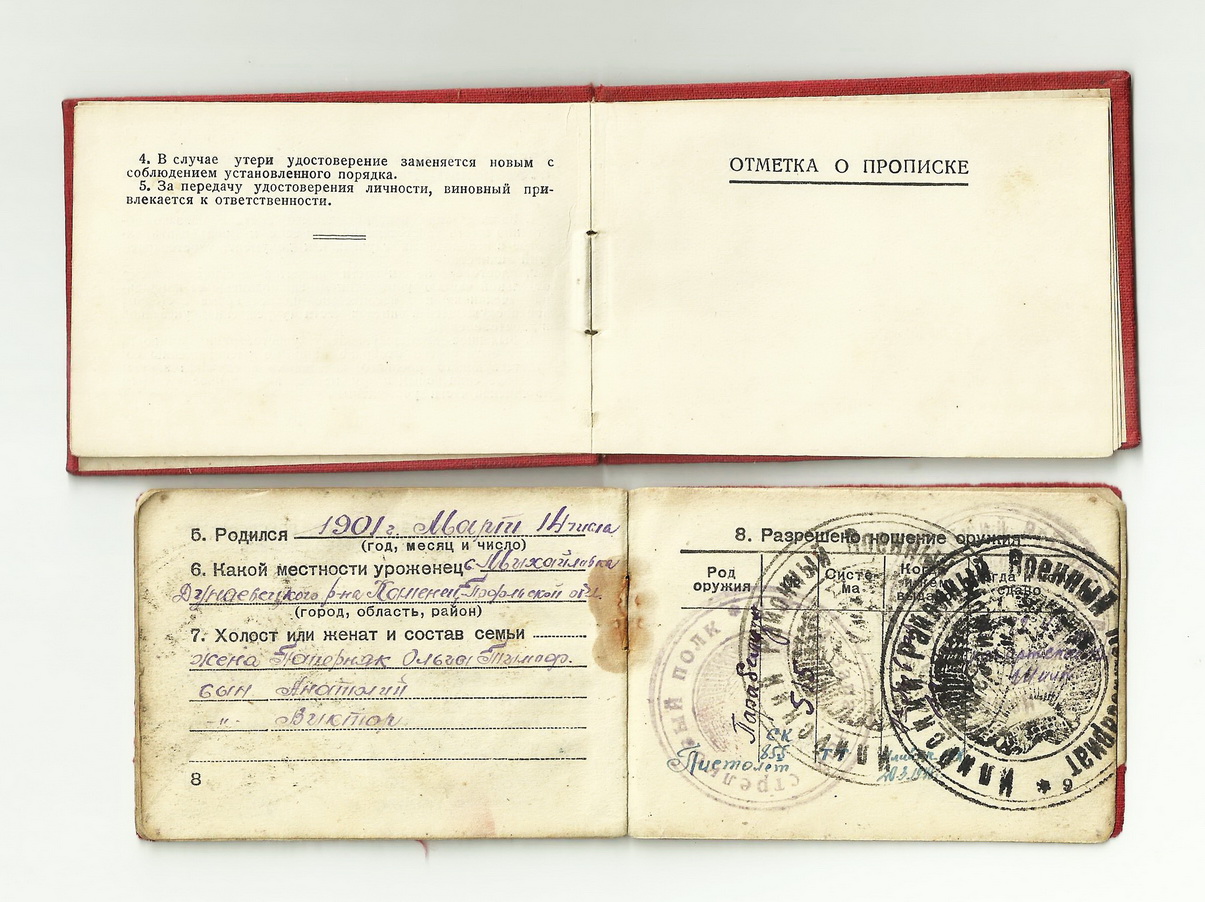 4. В случае утери удостоверение заменяется новым с
соблюдением установленного порядка.
5. За передачу удостоверения личности, виновный при-
влекается к ответственности.
ОТМЕТКА О ПРОПИСКЕ
5. Родился 1901 г. Март 14 числа
(год, месяц и число)
6. Какой местности уроженец с. Михайловка
Дунаевецкого р-на Каменец-Подольской обл.
(город, область, район)
7. Холост или женат и состав семьи
жена Ольга
сын Анатолий
-"- Виктор
8
8. Разрешено ношение оружия
Род
оружия
Систе-
ма
Пистолет
СК
855
Парабеллум
СТРЕЛКОВЫЙ ПОЛК
ИЛИРСКИЙ РАЙОННЫЙ ВОЕННЫЙ